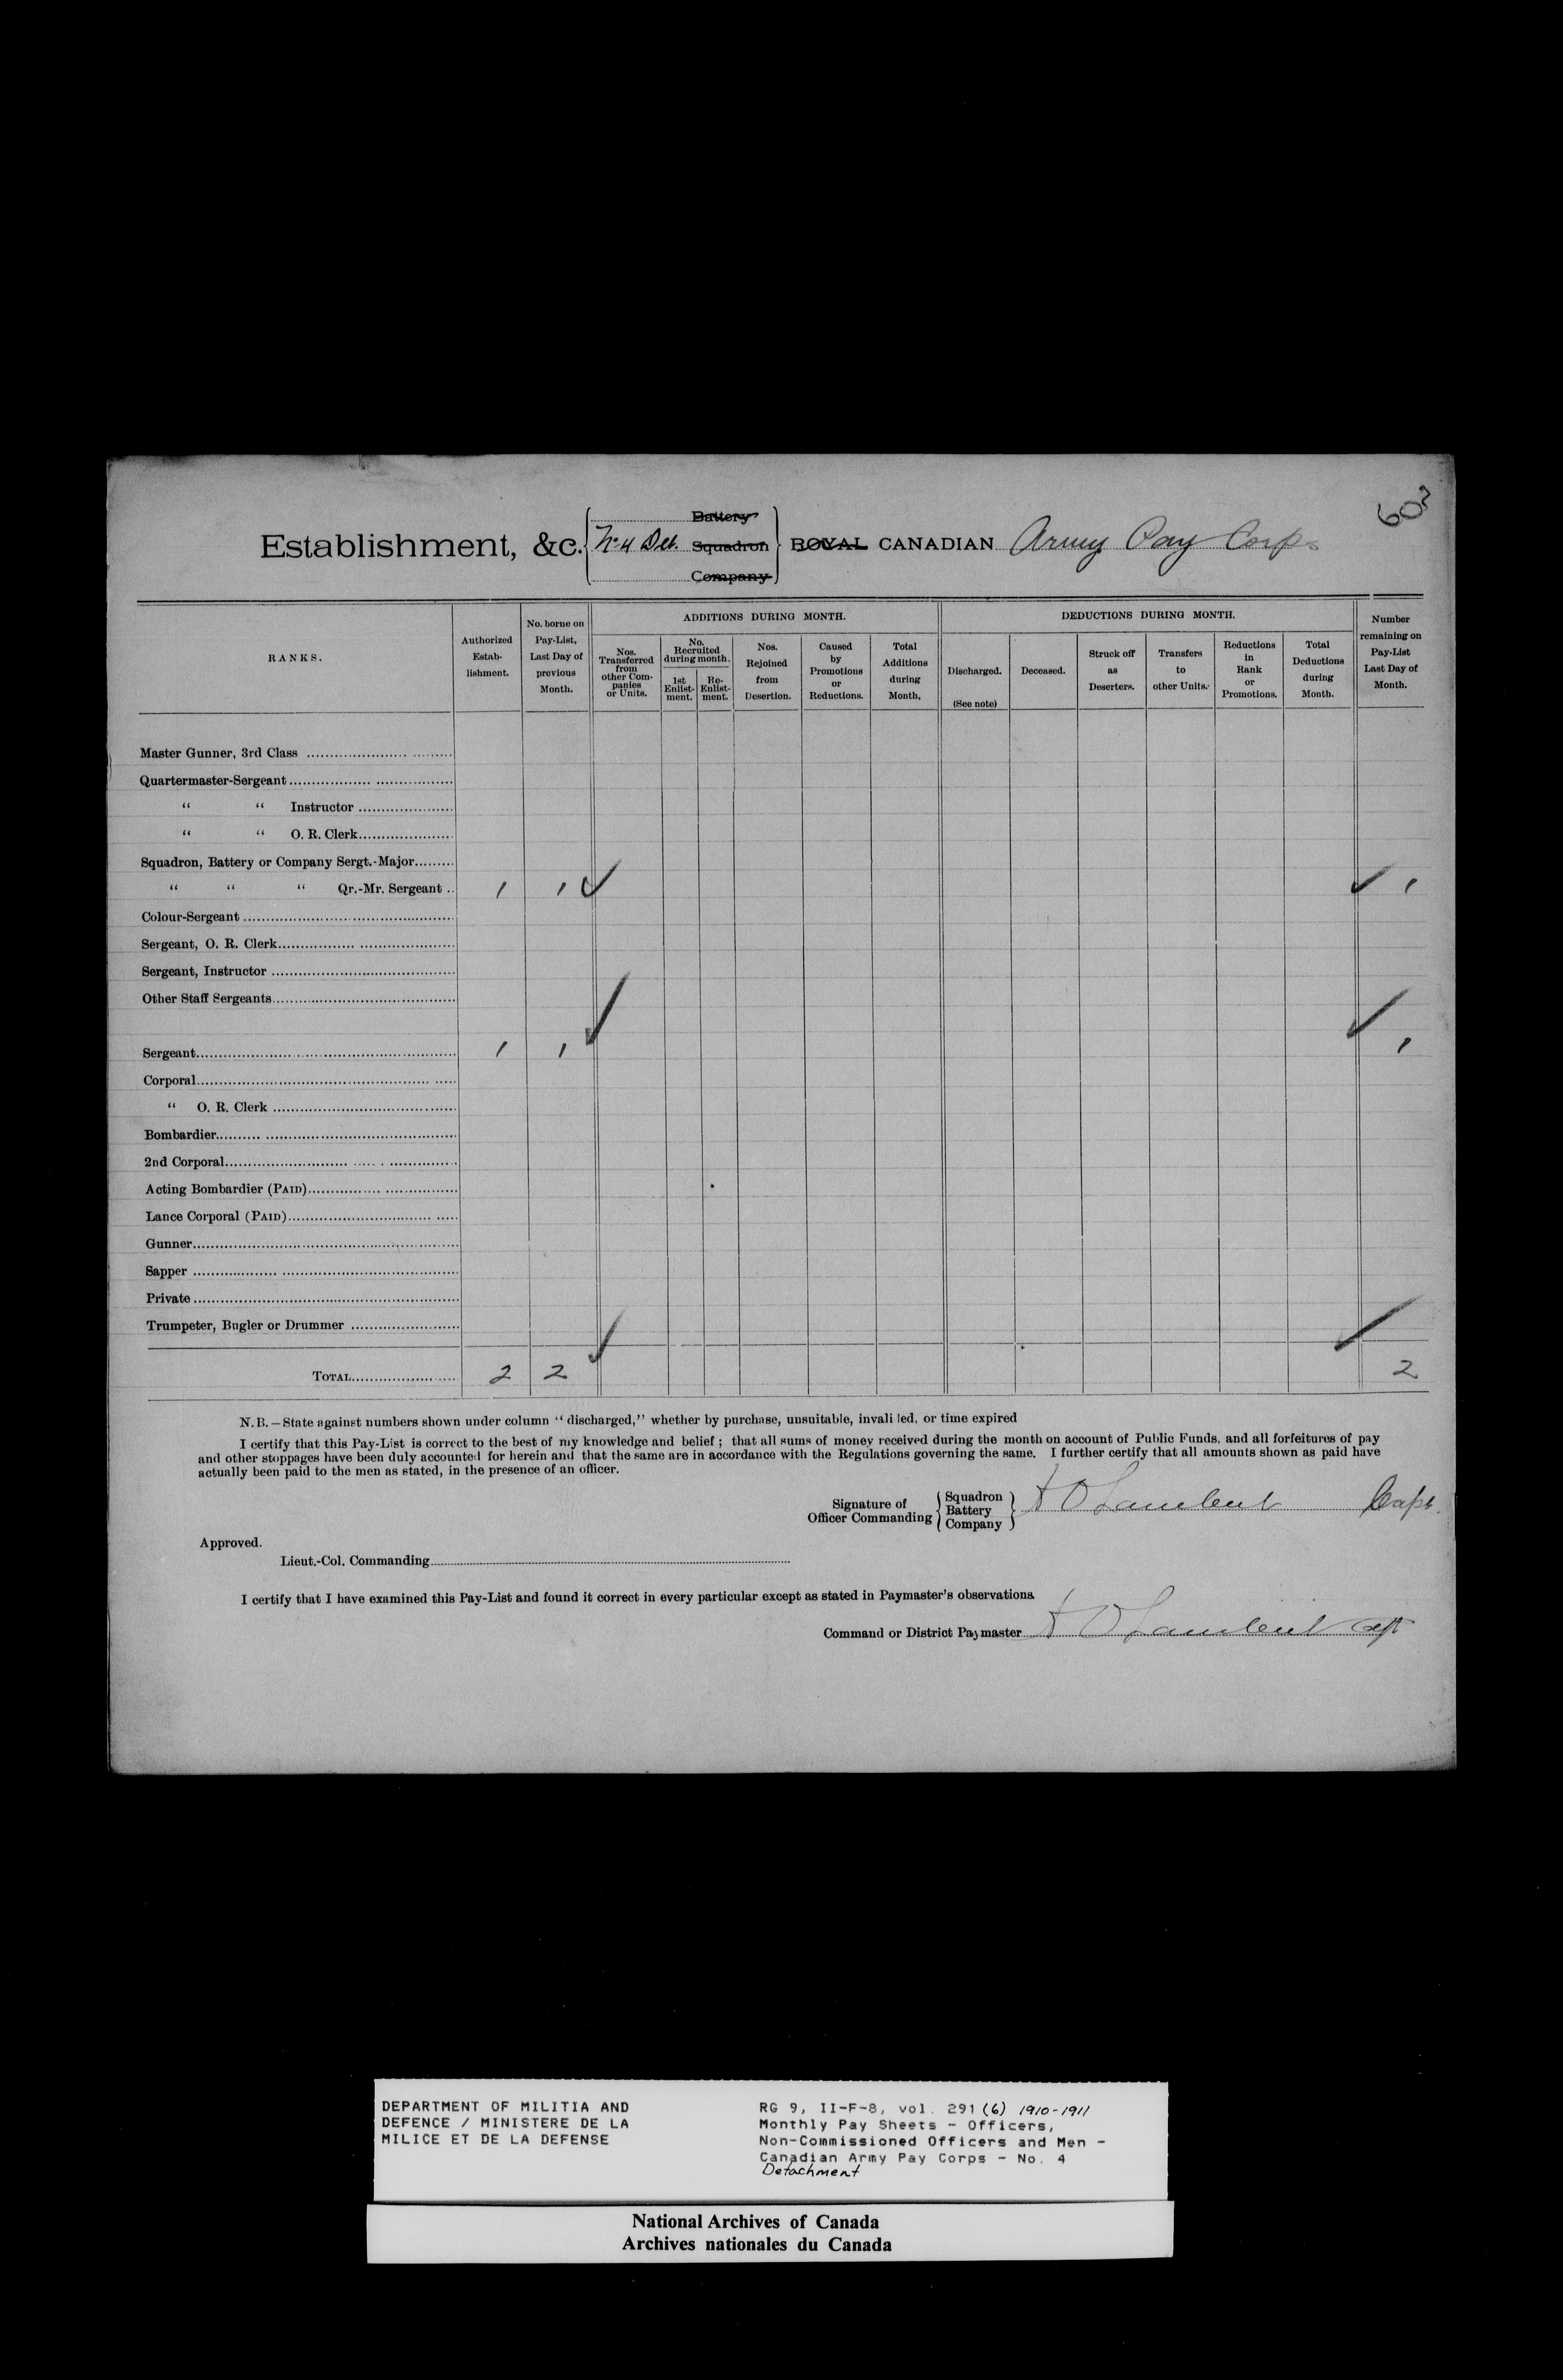 603
Establishment, &c. No 4 Det. Battery Squadron Company ROYAL CANADIAN Army Pay Corps
RANKS.
Authorized Estab-lishment.
No. borne on Pay-List, Last Day of previous Month.
ADDITIONS DURING MONTH.
Nos. Transferred from other Com-panies or Units.
No. Recruited during month.
1st Enlist-ment.
Re-Enlist-ment.
Nos. Rejoined from Desertion.
Caused by Promotions or Reductions.
Total Additions during Month.
DEDUCTIONS DURING MONTH.
Discharged. (See note)
Deceased.
Struck off as Deserters.
Transfers to other Units.
Reductions in Rank or Promotions.
Total Deductions during Month.
Number remaining on Pay-List Last Day of Month.
Master Gunner, 3rd Class
Quartermaster-Sergeant
“ “ Instructor
“ “ O. R. Clerk
Squadron, Battery or Company Sergt.-Major
“ “ “ Qr.-Mr. Sergeant 1 1 ✓ ✓ 1
Colour-Sergeant
Sergeant, O. R. Clerk
Sergeant, Instructor
Other Staff Sergeants
Sergeant 1 1 ✓ ✓ 1
Corporal
“ O. R. Clerk
Bombardier
2nd Corporal
Acting Bombardier (PAID)
Lance Corporal (PAID)
Gunner
Sapper
Private
Trumpeter, Bugler or Drummer
TOTAL 2 2 ✓ ✓ 2
N.B.—State against numbers shown under column “discharged,” whether by purchase, unsuitable, invali led, or time expired
I certify that this Pay-List is correct to the best of my knowledge and belief; that all sums of money received during the month on account of Public Funds, and all forfeitures of pay
and other stoppages have been duly accounted for herein and that the same are in accordance with the Regulations governing the same. I further certify that all amounts shown as paid have
actually been paid to the men as stated, in the presence of an officer.
Signature of Officer Commanding { Squadron Battery Company } Lambert Capt.
Approved.
Lieut.-Col. Commanding
I certify that I have examined this Pay-List and found it correct in every particular except as stated in Paymaster's observations
Command or District Paymaster Lambert Capt
DEPARTMENT OF MILITIA AND
DEFENCE / MINISTERE DE LA
MILICE ET DE LA DEFENSE
RG 9, II-F-8, vol. 291 (6) 1910-1911
Monthly Pay Sheets - Officers,
Non-Commissioned Officers and Men -
Canadian Army Pay Corps - No. 4
Detachment
National Archives of Canada
Archives nationales du Canada